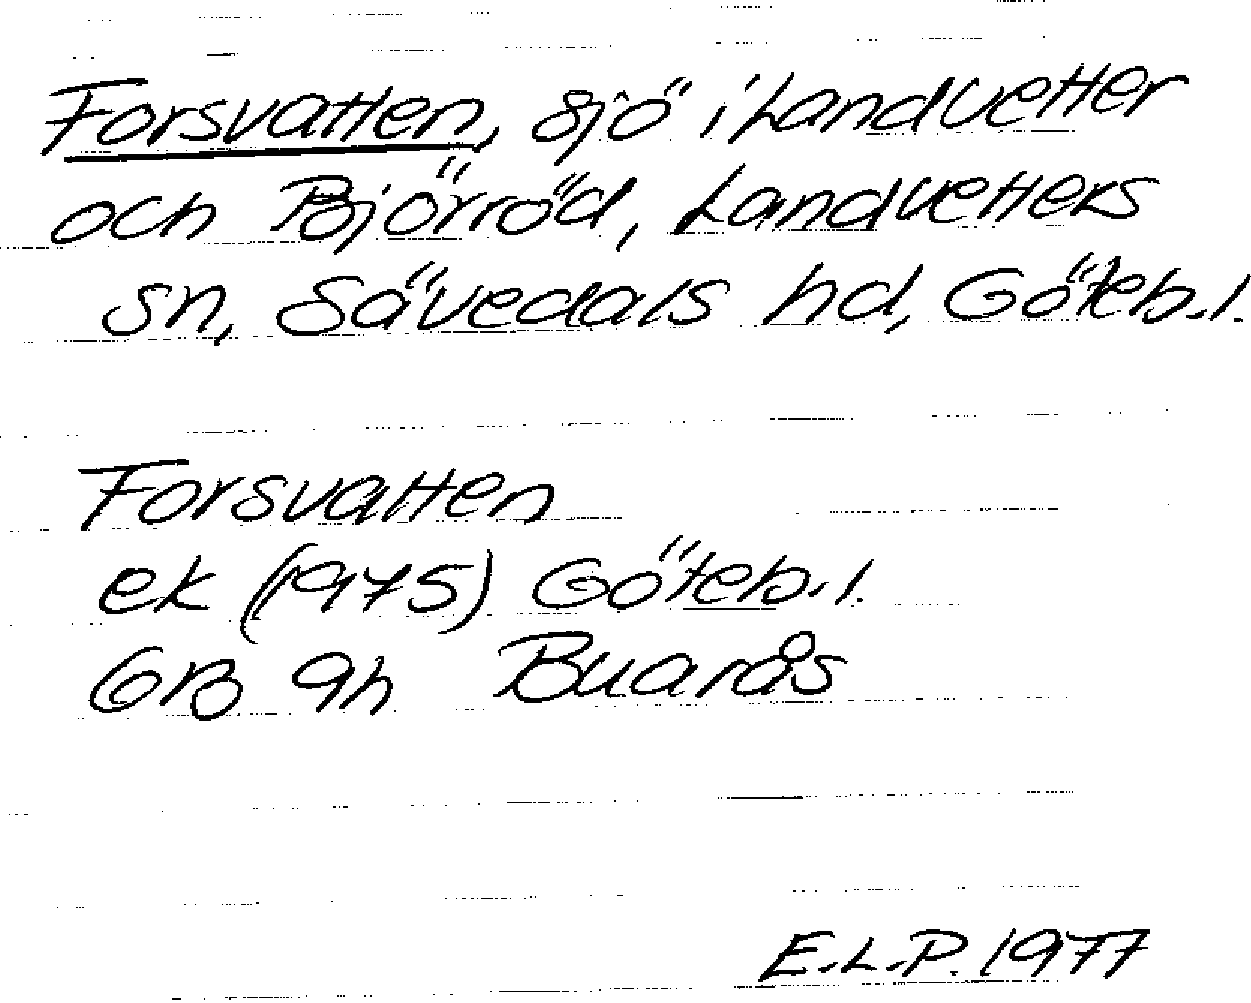 Forsvatten, sjö i Landvetter
och Björröd, Landvetters
sn, Sävedals hd, Göteb.l.
Forsvatten
ek (1975) Göteb.l.
GB 9h Buarås
E.L.P. 1977